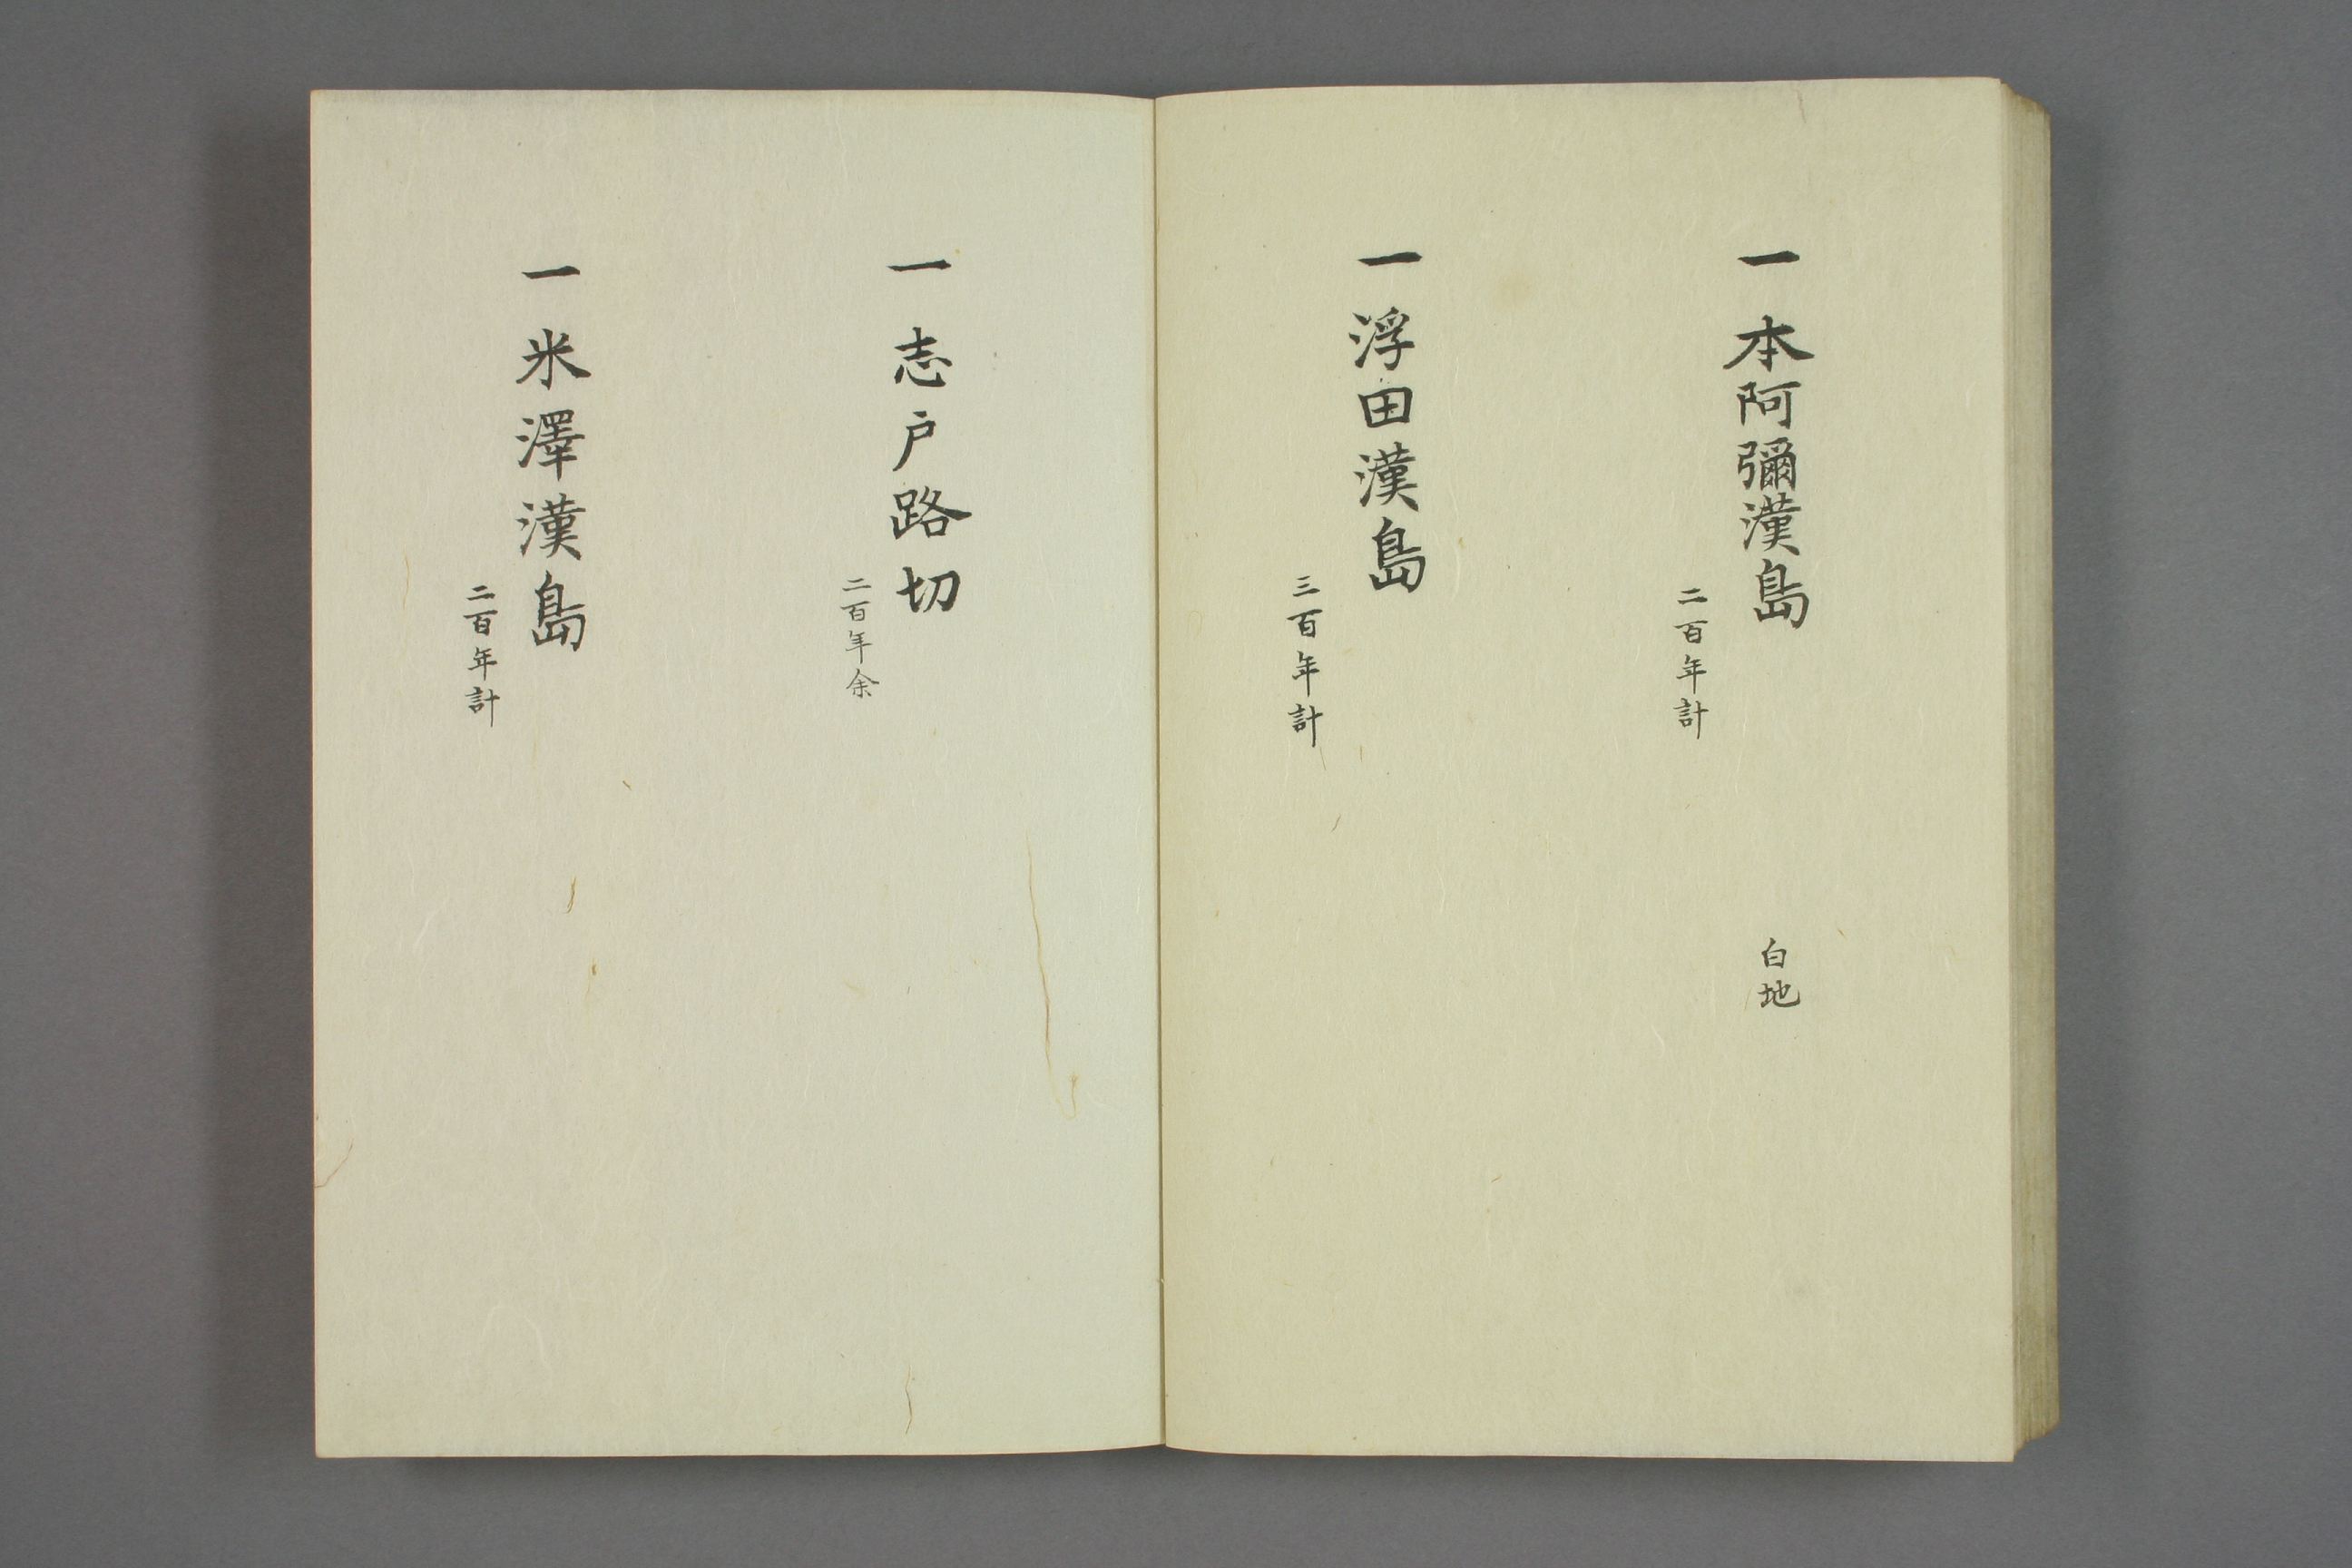 一本阿彌漢島
二百年計
白地
一浮田漢島
三百年計
一志戸路切
二百年余
一米澤漢島
二百年計